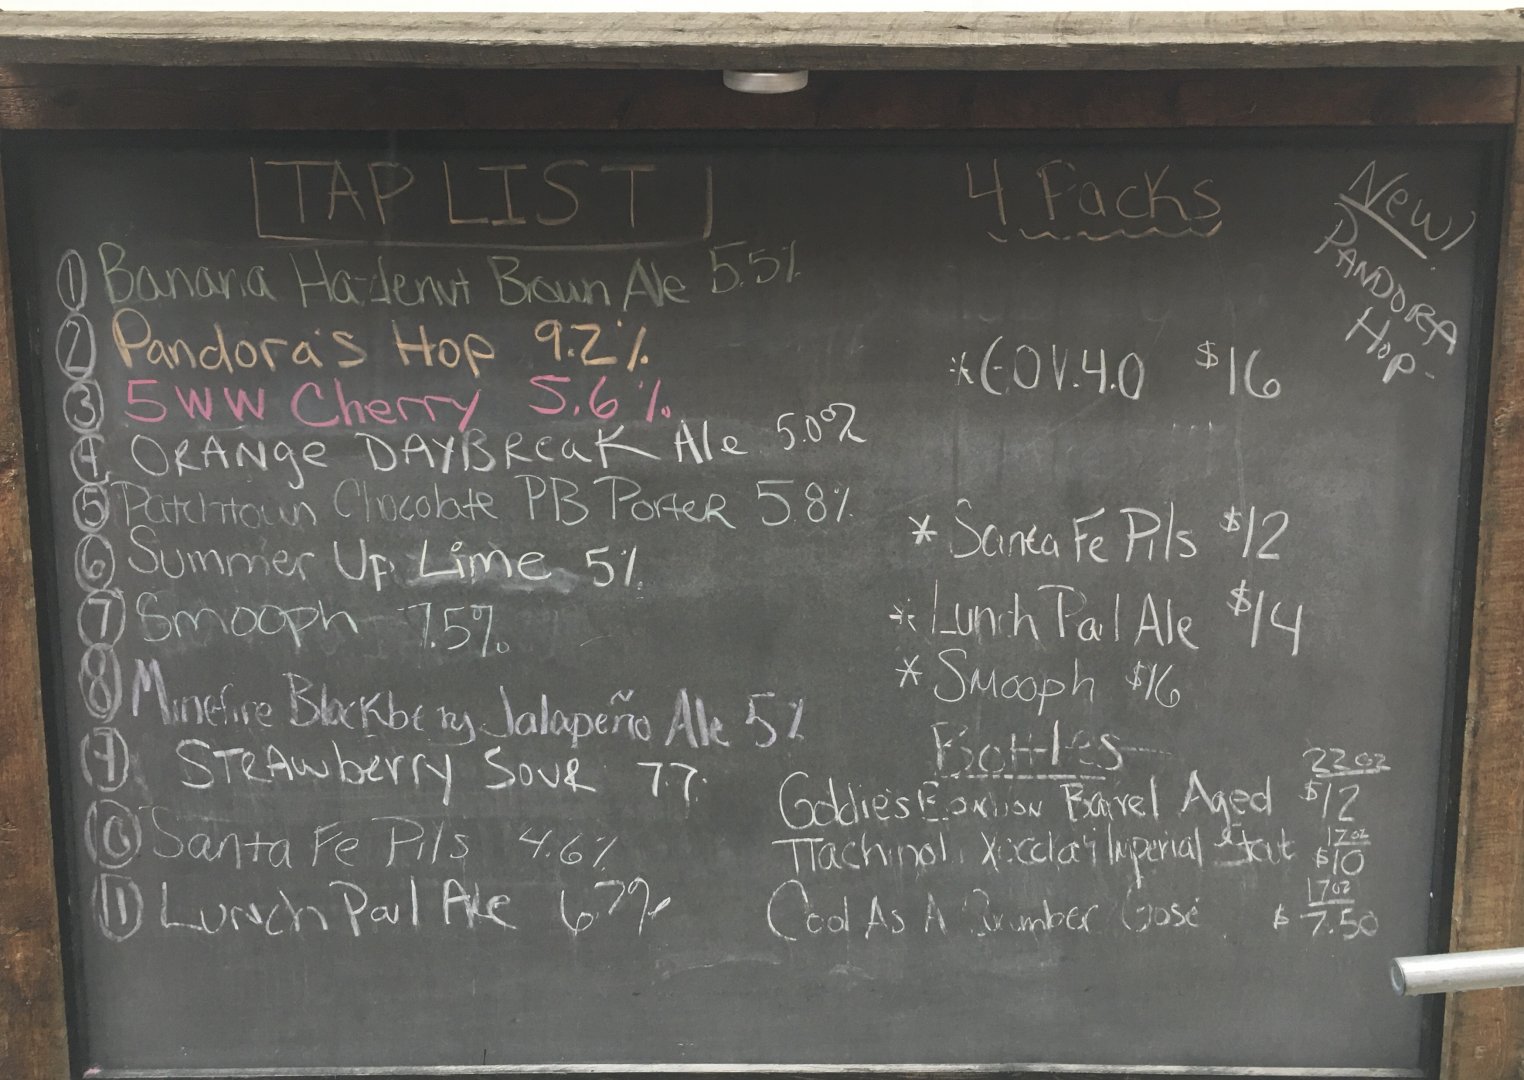 TAP LIST
① Banana Hazlenut Brown Ale 5.5%
② Pandora's Hop 9.2%
③ 5WW Cherry 5.6%
④ ORANge DAYBReaK Ale 5.0%
⑤ Patchtown Chocolate PB Porter 5.8%
⑥ Summer Up Lime 5%
⑦ Smooph 7.5%
⑧ Minefire Blackberry Jalapeño Ale 5%
⑨ STRAwberry Sour 7.7.
⑩ Santa Fe Pils 4.6%
⑪ Lunch Pail Ale 6.7%
4 Packs
* G.O.V. 4.0 $16
* Santa Fe Pils $12
* Lunch Pail Ale $14
* Smooph $16
Bottles
22oz
Goldie's Barrel Aged $12
Imperial Stout 17oz $10
Cool As A Cucumber Gose 17oz $7.50
New!
PANDORA
Hop